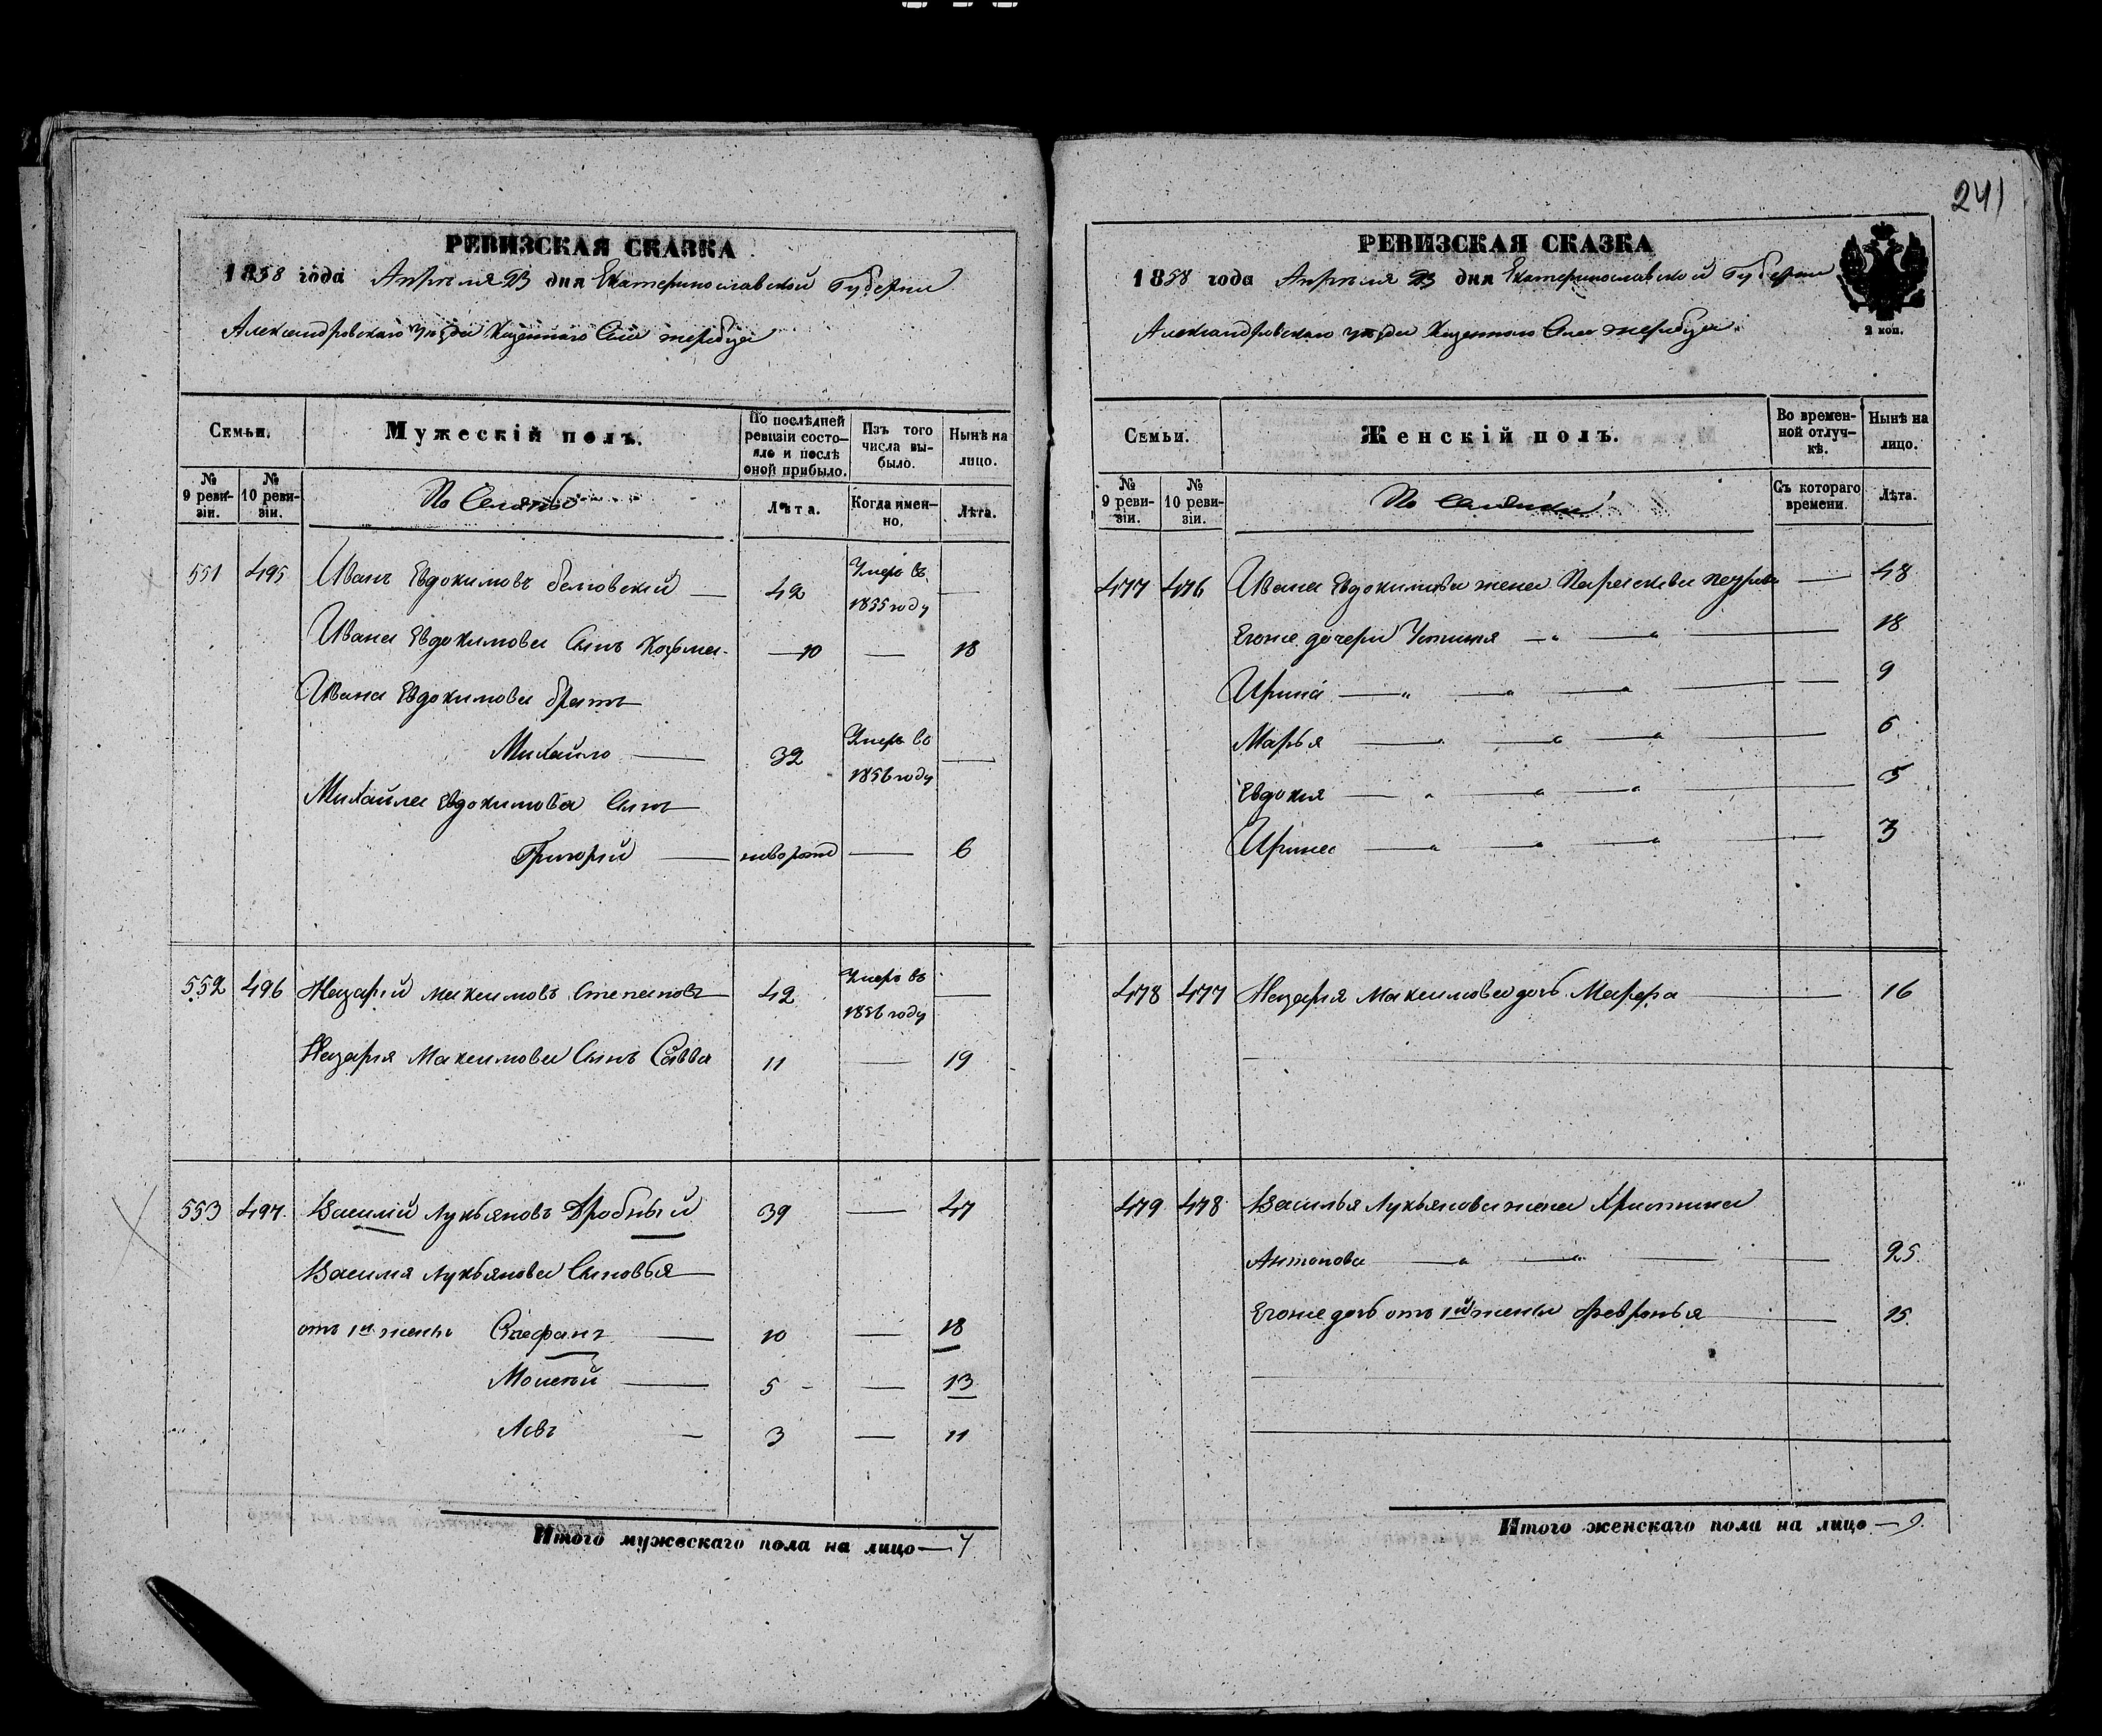 241
РЕВИЗСКАЯ СКАЗКА
1858 года Апреля 23 дня Екатеринославской Губернии
Александровскаго уезда Казеннаго Села жеребца
Семьи.
Мужескій полъ.
По послѣдней ревизіи состо-
яло и послѣ оной прибыло.
Изъ того числа вы-
было.
Нынѣ на лицо.
№ 9 реви-
зіи.
№ 10 реви-
зіи.
Лѣта.
Когда имен-
но.
Лѣта.
551 495 Иванъ Евдокимовъ — 42 Умеръ въ 1855 году —
Ивана Евдокимова Сынъ Козьма — 10 — 18
Ивана Евдокимова братъ
Михайло — 32 Умеръ въ 1856 году —
Михайла Евдокимова Сынъ
Григорій — новорожд — 6
552 496 Назарій Максимовъ Степановъ 42 Умеръ въ 1856 году —
Назарія Максимова Сынъ Савва 11 — 19
553 497 Василій Лукьяновъ Дробный 39 — 47
Василия Лукьянова Сыновья —
отъ 1й жены Стефанъ — 10 — 18
Моисей — 5 — — 13
Левъ — 3 — 11
Итого мужескаго пола на лицо — 7
РЕВИЗСКАЯ СКАЗКА
1858 года Апреля 23 дня Екатеринославской Губернии
Александровскаго уезда Казеннаго Села жеребца
2 коп.
Семьи.
Женскій полъ.
Во времен-
ной отлуч-
кѣ.
Нынѣ на лицо.
№ 9 реви-
зіи.
№ 10 реви-
зіи.
Съ котораго времени.
Лѣта.
477 476 Ивана Евдокимова жена Параскева — 48
Егоже дочери Устинья — " — " — 18
Ирина — " — " — " — 9
Марья — " — " — " — 6
Евдокия — " — " — " — 5
Ирина — " — " — " — 3
478 477 Назария Максимова дочь Марфа — 16
479 478 Василья Лукьянова жена Христина
Антонова — " — " — 25
Егоже дочь отъ 1й жены Февронья — 15
Итого женскаго пола на лицо — 9.